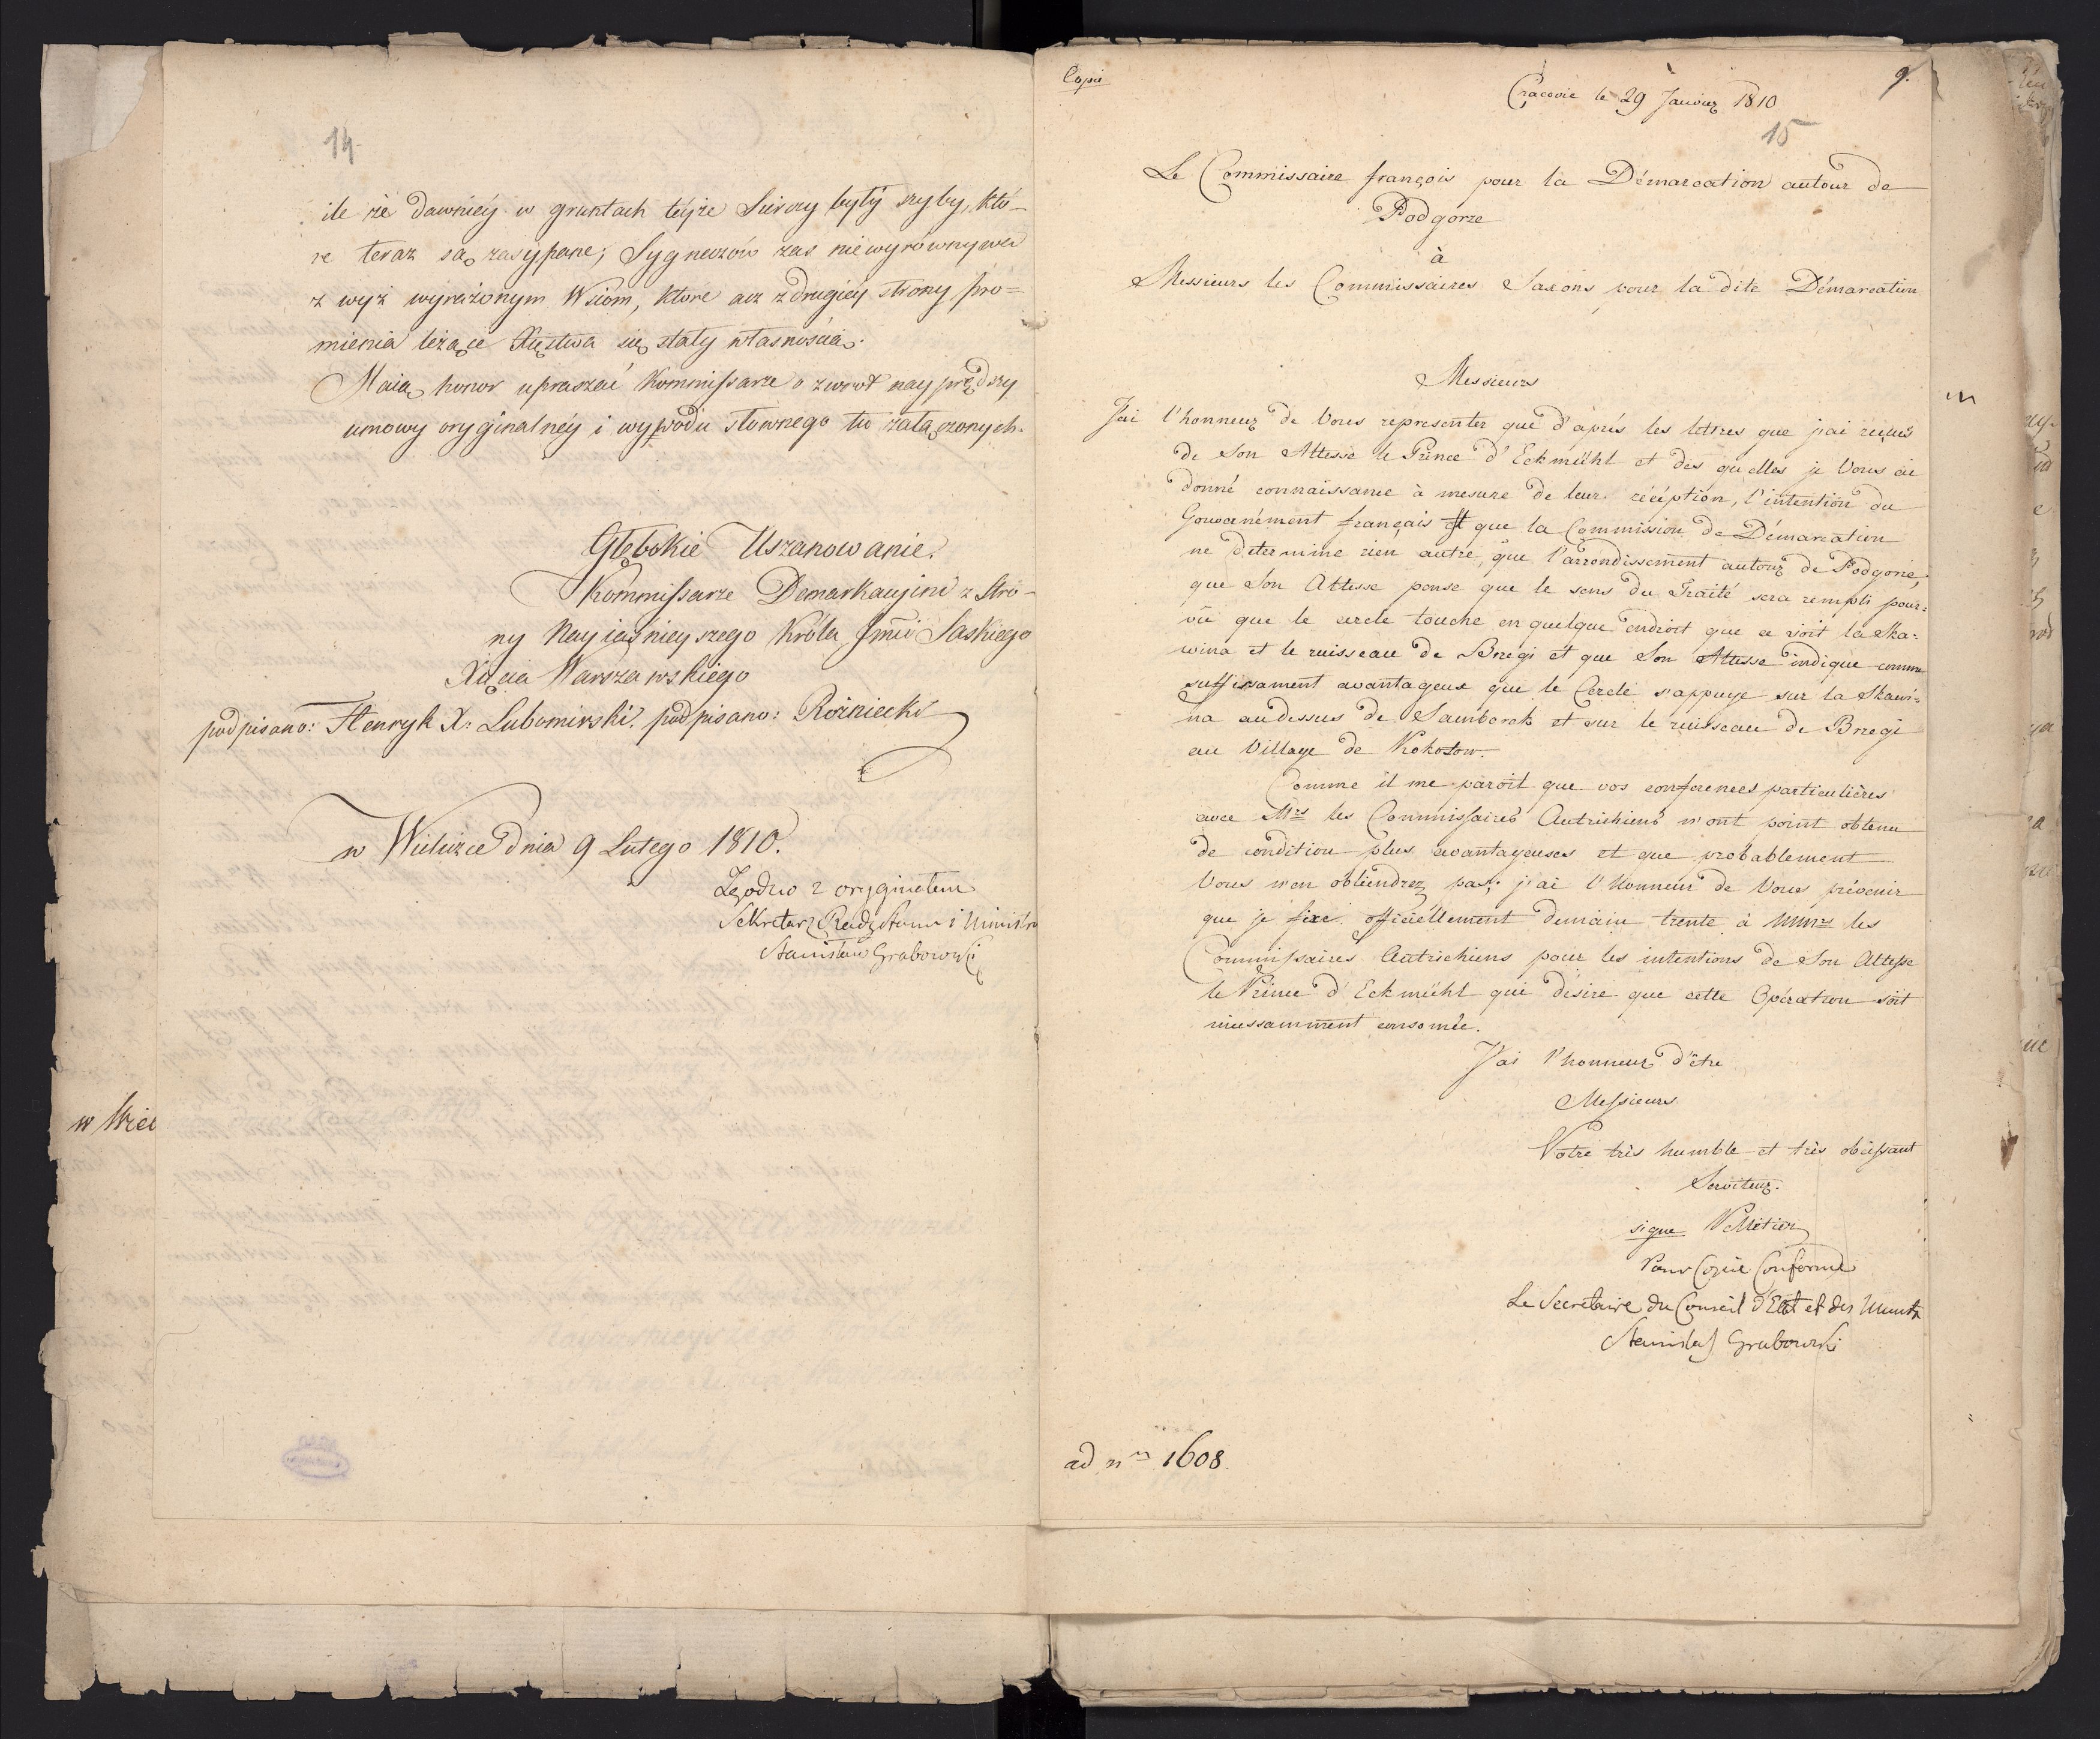 14
ile że dawniéy w gruntach téyże Sierczy były szyby, któ-
re teraz są zasypane; Sygneczów zas niewyrównywa
z wyż wyrażonym Wsiom, które acz z drugiéy strony pro=
mienia leżące Xięstwa się stały własnością.
Maią honor upraszać Kommissarze o zwrot nayprędszy
umowy oryginalnéy i wywodu słownego tu załączonych.
Głębokie Uszanowanie.
Kommissarze Demarkacyini z Stro-
ny Nayiaśnieyszego Króla Jmci Saskiego
Xięcia Warszawskiego
podpisano: Henryk X: Lubomirski. podpisano: Rożniecki
w Wieliczce dnia 9 Lutego 1810.
Zgodno z oryginałem
Sekretarz Rady Stanu i Ministrow
Stanisław Grabowski
w Wiel
Copie
9.
Cracovie le 29 Janvier 1810
15
Le Commissaire françois pour la Démarcation autour de
Podgorze
à
Messieurs les Commissaires Saxons pour la dite Démarcation
Messieurs
J'ai l'honneur de Vous representer que d'après les lettres que j'ai reçues
de Son Altesse le Prince d'Eckmühl et des quelles je Vous ai
donné connaissance à mesure de leur réception, l'intention du
Gouvernément français est que la Commission de Démarcation
ne determine rien autre, que l'arrondissement autour de Podgorze,
que Son Altesse pense que le sens du Traité sera rempli pour=
vû que le cercle touche en quelque endroit que ce soit la Ska=
wina et le ruisseau de Bregi et que Son Altesse indique comme
suffisament avantageux que le Cercle s'appuye sur la Skawi=
na au dessus de Samborek et sur le ruisseau de Bregi
au Village de Kokotow.
Comme il me paroit que vos conferences particulières
avec Mrs les Commissaires Autrichiens n'ont point obtenu
de condition plus avantageuses et que probablement
Vous n'en obtiendrez pas; j'ai l'honneur de Vous prévenir
que je fixe officiellement demain trente à MMrs les
Commissaires Autrichiens pour les intentions de Son Altesse
le Prince d'Eckmühl qui désire que cette Opération soit
incessamment consomée.
J'ai l'honneur d'être
Messieurs
Votre très humble et très obéissant
Serviteur.
signé Pelletier
Pour Copie Conforme
Le Secretaire du Conseil d'Etat et des Ministr
Stanislas Grabowski
ad nrm 1608.